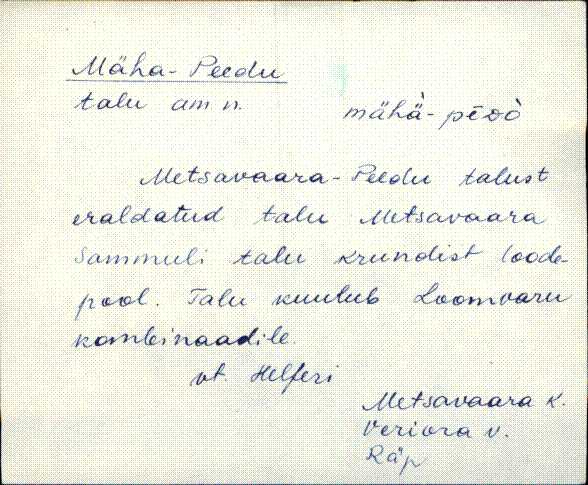 Mäha-Peedu
talu am n. mähä-pēdò
Metsavaara-Peedu talust
eraldatud talu Metsavaara
Sammuli talu krundist loode-
pool. Talu kuulub Loomvaru
kombinaadile.
vt. Helferi
Metsavaara k.
Veriora v.
Räp